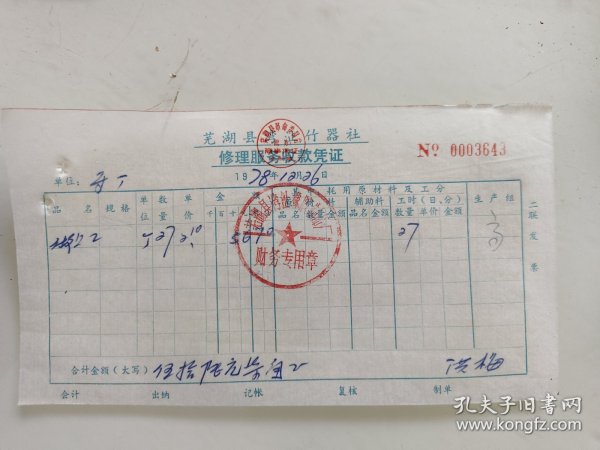 芜湖县 竹器社
修理服务收款凭证
Nº 0003643
1978年12月26日
单位:
品名 规格 单位 数量 单价 金 千 百 十 其中:耗用原材料及工分 生产组
品名 数量 金额 辅助料 品名 金额 工时(日、分) 数量 单价 金额
27 2.10 56 70 27
财务专用章
二联发票
合计金额(大写) 伍拾陆元柒角
会计 出纳 记帐 复核 制单
孔夫子旧书网
www.kongfz.com